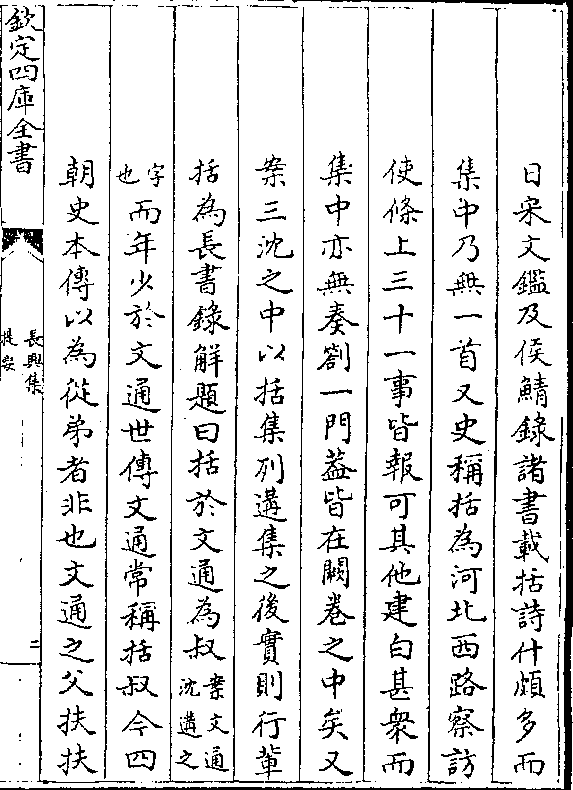 日宋文鑑及侯鯖錄諸書載括詩什頗多而
集中乃無一首又史稱括為河北西路察訪
使條上三十一事皆報可其他建白甚衆而
集中亦無奏劄一門葢皆在闕卷之中矣又
案三沈之中以括集列遘集之後實則行輩
括為長書錄解題曰括於文通為叔案文通沈遘之
字也而年少於文通世傳文通常稱括叔今四
朝史本傳以為從弟者非也文通之父扶扶
欽定四庫全書
長興集
提要
二